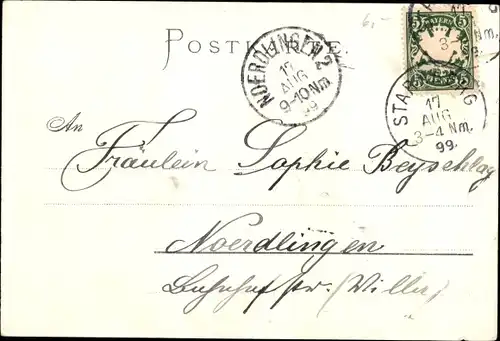 6,-
POSTKARTE.
NOERDLINGEN 2
17
AUG
9-10 Nm
99
BAYERN
5 5
5 PFENNIG 5
STARNBERG
17
AUG
3-4 Nm.
99.
An
Fräulein Sophie Beyschlag
Noerdlingen
Bahnhofstr. (Villa)